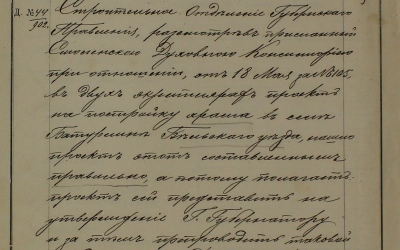 Д. № 44/902.
Строительное Отдѣленіе Губернскаго
Правленія, разсмотрѣвъ присланный
Смоленской Духовной Консисторіею
при отношеніи, отъ 18 Мая за № 8105,
въ двухъ экземплярахъ проектъ
на постройку храма въ селѣ
Батуринѣ Бѣльскаго уѣзда, нашло
проектъ этотъ составленнымъ
правильно, а потому полагаетъ
проектъ сей представить на
утвержденіе Г. Губернатору
и за тѣмъ препроводить таковой